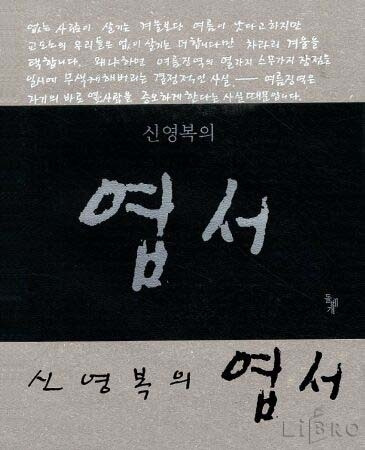 없는 사람이 살기는 겨울보단 여름이 낫다고하지만
교도소의 우리들은 없이 살기는 더합니다만 차라리 겨울을
택합니다. 왜냐하면 여름징역의 열가지 스무가지 장점을
일시에 무색케해버리는 결정적인 사실. — 여름징역은
자기의 바로 옆사람을 증오하게 한다는 사실 때문입니다.
신영복의
엽서
돌베개
신영복의 엽서
LIBRO